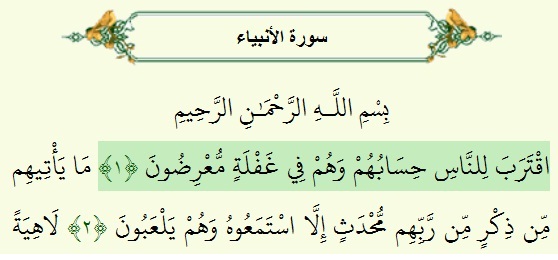 سورة الأنبياء
بِسْمِ اللَّـهِ الرَّحْمَـٰنِ الرَّحِيمِ
اقْتَرَبَ لِلنَّاسِ حِسَابُهُمْ وَهُمْ فِي غَفْلَةٍ مُّعْرِضُونَ ﴿١﴾ مَا يَأْتِيهِم
مِّن ذِكْرٍ مِّن رَّبِّهِم مُّحْدَثٍ إِلَّا اسْتَمَعُوهُ وَهُمْ يَلْعَبُونَ ﴿٢﴾ لَاهِيَةً